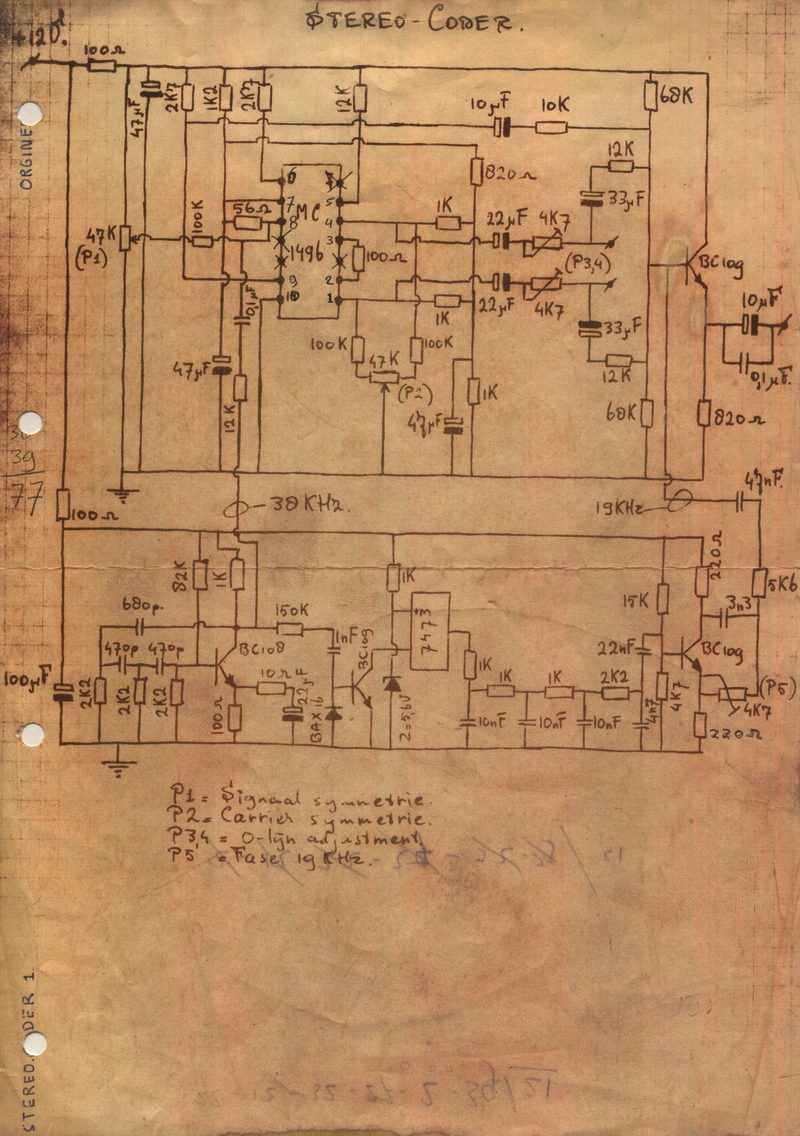 STEREO-CODER.
+12V.
100Ω
47µF
2K7
1K2
2K7
12K
10µF
10K
68K
ORGINE
6
7
8
9
10
5
4
3
2
1
MC
1496
56Ω
100K
47K
(P1)
0,1µF
100Ω
820Ω
12K
33µF
1K
22µF
4K7
(P3,4)
22µF
4K7
1K
33µF
12K
BC109
10µF
0,1µF.
100K
47K
100K
(P2)
47µF
12K
47µF
1K
68K
820Ω
39
77
100Ω
38KHz.
19KHz
47nF.
82K
1K
680p.
470p
470p
150K
1nF
BC109
1K
7473
15K
220Ω
5K6
3n3
BC108
10Ω
22µF
BAX16
Z=5,6V
1K
1K
1K
2K2
22nF
BC109
(P5)
4K7
4K7
100µF
2K2
2K2
2K2
100Ω
10nF
10nF
10nF
4n7
220Ω
P1 = Signaal symmetrie.
P2 = Carrier symmetrie.
P3,4 = 0-lijn adjustment,
P5 = Fase 19KHz.
STEREO.CODER 1.